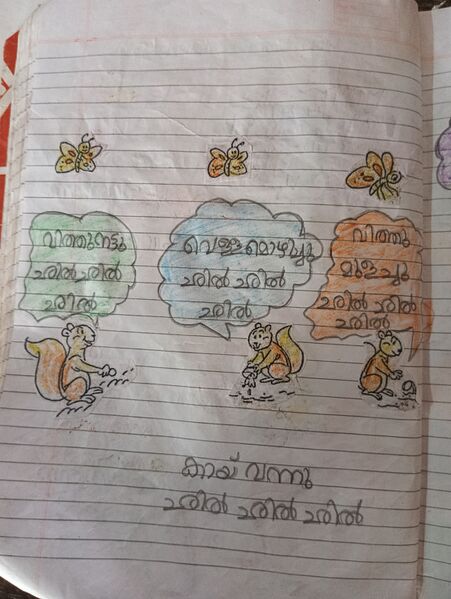 വിത്തുനട്ടു
ഛിൽ ഛിൽ
ഛിൽ
വെള്ളമൊഴിച്ചു
ഛിൽ ഛിൽ
ഛിൽ
വിത്തു
മുളച്ചു
ഛിൽ ഛിൽ
ഛിൽ
കായ് വന്നു
ഛിൽ ഛിൽ ഛിൽ